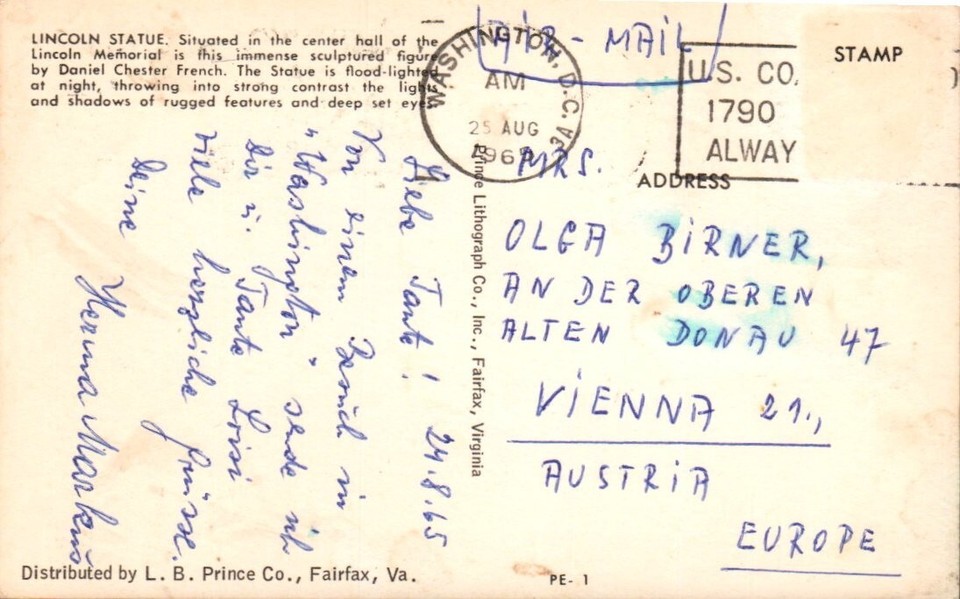 LINCOLN STATUE. Situated in the center hall of the
Lincoln Memorial is this immense sculptured figure
by Daniel Chester French. The Statue is flood-lighted
at night, throwing into strong contrast the lights
and shadows of rugged features and deep set eyes.
AIR-MAIL
WASHINGTON, D.C.
AM
25 AUG
1965
U.S. CO
1790
ALWAY
STAMP
ADDRESS
Liebe Tante! 24.8.65
Von einem Besuch in
"Washington" sende ich
Dir u. Tante Loisi
viele herzliche Grüsse.
Deine
Herma Markus
Prince Lithograph Co., Inc., Fairfax, Virginia
MRS.
OLGA BIRNER,
AN DER OBEREN
ALTEN DONAU 47
VIENNA 21.,
AUSTRIA
EUROPE
Distributed by L. B. Prince Co., Fairfax, Va.
PE- 1